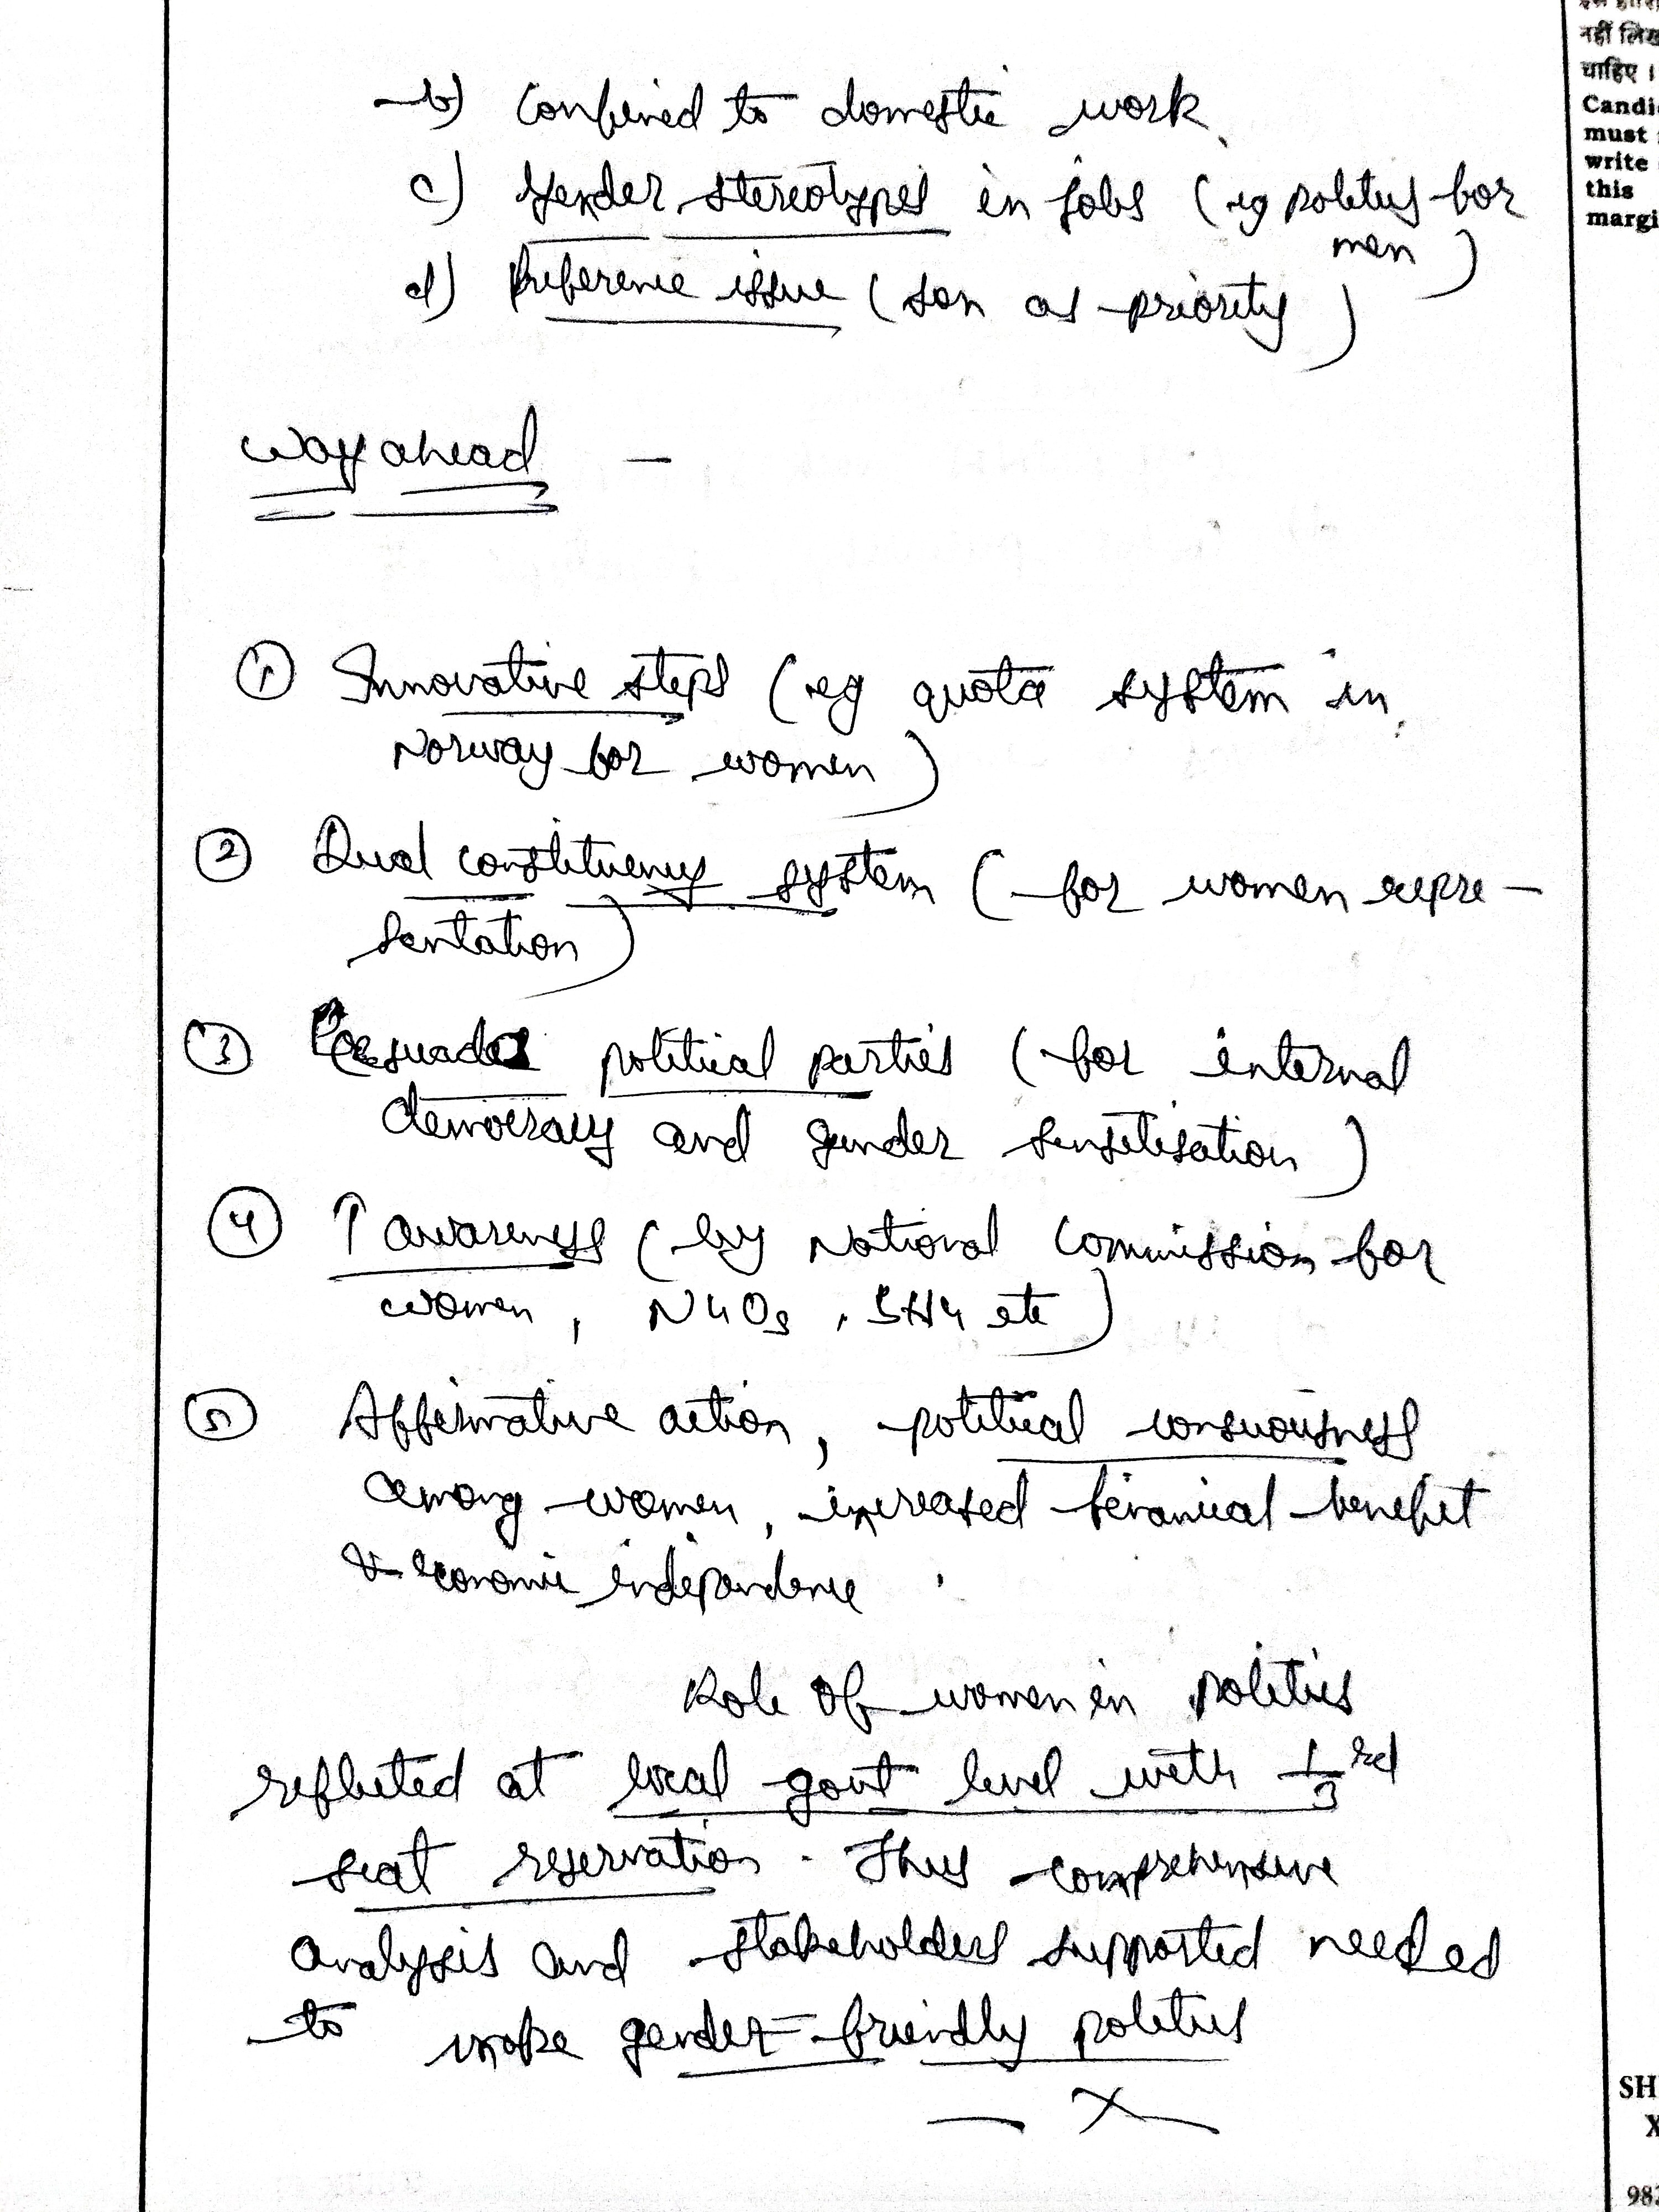 b) Confined to domestic work
c) Gender stereotypes in jobs (eg politics for
men)
d) Preference issue (son as priority)
Way ahead -
① Innovative steps (eg quota system in
Norway for women)
② Dual constituency system (for women repre-
sentation)
③ Persuade political parties (for internal
democracy and gender sensitisation)
④ ↑ awareness (by National Commission for
women, NGOs, SHG etc)
⑤ Affirmative action, political consciousness
among women, increased financial benefit
& economic independence.
Role of women in politics
reflected at local govt level with 1/3rd
seat reservation. Thus comprehensive
analysis and stakeholders supported needed
to make gender-friendly politics
— X —
नहीं लिख
चाहिए ।
Candi
must
write
this
margi
SH
X